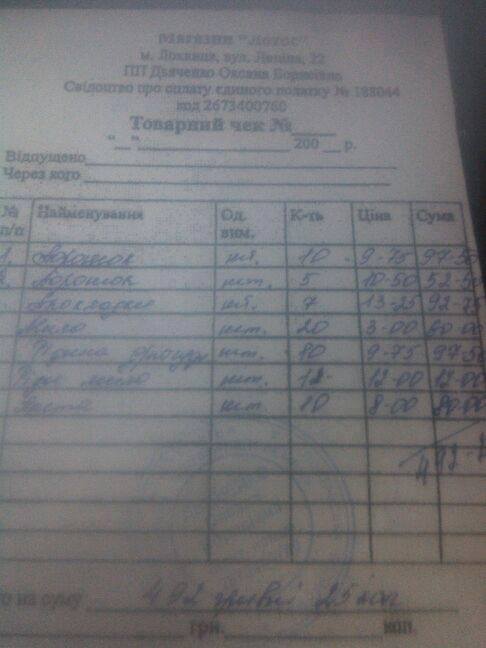 Магазин "Лотос"
м. Лохвиця, вул. Леніна, 22
ПП Дяченко Оксана Борисівна
Свідоцтво про сплату єдиного податку № 188044
код 2673400760
Товарний чек №____
"__"____________ 200__ р.
Відпущено
Через кого
№ п/п Найменування Од. вим. К-ть Ціна Сума
1. Порошок шт. 10 9-75 97-50
2. Порошок шт. 5 10-50 52-50
Прокладки шт. 7 13-25 92-75
Мило шт. 20 3-00 60-00
шт. 9-75 97-50
мило шт. 12-00 12-00
Паста шт. 10 8-00 80-00
492-2
го на суму 492 гривні 25 коп
грн. коп.